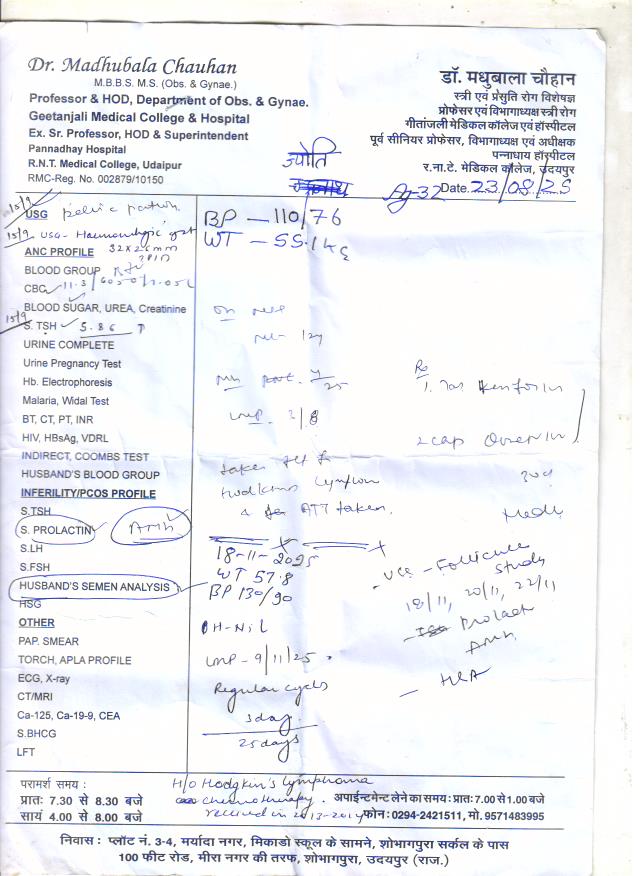 Dr. Madhubala Chauhan
M.B.B.S. M.S. (Obs. & Gynae.)
Professor & HOD, Department of Obs. & Gynae.
Geetanjali Medical College & Hospital
Ex. Sr. Professor, HOD & Superintendent
Pannadhay Hospital
R.N.T. Medical College, Udaipur
RMC-Reg. No. 002879/10150
डॉ. मधुबाला चौहान
स्त्री एवं प्रसुति रोग विशेषज्ञ
प्रोफेसर एवं विभागाध्यक्ष स्त्री रोग
गीतांजली मेडिकल कॉलेज एवं हॉस्पीटल
पूर्व सीनियर प्रोफेसर, विभागाध्यक्ष एवं अधीक्षक
पन्नाधाय हॉस्पीटल
र.ना.टे. मेडिकल कॉलेज, उदयपुर
ज्योति
Ag-32 Date. 23/08/25
15/9
USG pelvic
15/9 USG - Haemorrhagic cyst
ANC PROFILE 32x26mm
BLOOD GROUP
CBC 11.3/6050/
BLOOD SUGAR, UREA, Creatinine
15/9
S. TSH 5.86 ↑
URINE COMPLETE
Urine Pregnancy Test
Hb. Electrophoresis
Malaria, Widal Test
BT, CT, PT, INR
HIV, HBsAg, VDRL
INDIRECT, COOMBS TEST
HUSBAND'S BLOOD GROUP
INFERILITY/PCOS PROFILE
S.TSH
S. PROLACTIN AMH
S.LH
S.FSH
HUSBAND'S SEMEN ANALYSIS
HSG
OTHER
PAP. SMEAR
TORCH, APLA PROFILE
ECG, X-ray
CT/MRI
Ca-125, Ca-19-9, CEA
S.BHCG
LFT
BP - 110/76
WT - 55.1 kg
LMP. 2/8
taken
Hodgkins Lymphom
ATT taken.
18-11-2025
WT 57.8
BP 130/90
OH-Nil
LMP - 9/11/25.
Regular cycles
3day
25days
Rx
1. Tab
2 cap
- Follicular
Study
18/11, 20/11, 22/11
- Prolact
AMH.
H/O Hodgkin's Lymphoma
Chemotherapy.
received in 2013-2014
परामर्श समय :
प्रातः 7.30 से 8.30 बजे
सायं 4.00 से 8.00 बजे
अपाईन्टमेन्ट लेने का समय : प्रातः 7.00 से 1.00 बजे
फोन : 0294-2421511, मो. 9571483995
निवास : प्लॉट नं. 3-4, मर्यादा नगर, मिकाडो स्कूल के सामने, शोभागपुरा सर्कल के पास
100 फीट रोड, मीरा नगर की तरफ, शोभागपुरा, उदयपुर (राज.)